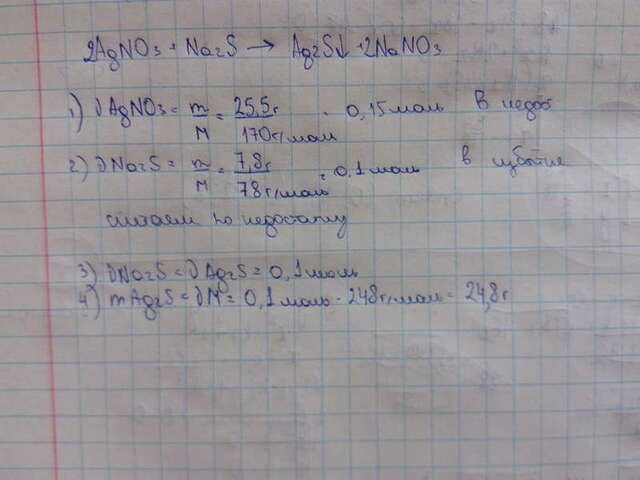 2AgNO3 + Na2S → Ag2S↓ + 2NaNO3
1) νAgNO3 = m/M = 25,5г/170г/моль = 0,15 моль В недос
2) νNa2S = m/M = 7,8г/78г/моль = 0,1 моль в избытке
считаем по недостатку
3) νNa2S = νAg2S = 0,1 моль
4) mAg2S = νM = 0,1 моль · 248г/моль = 24,8г